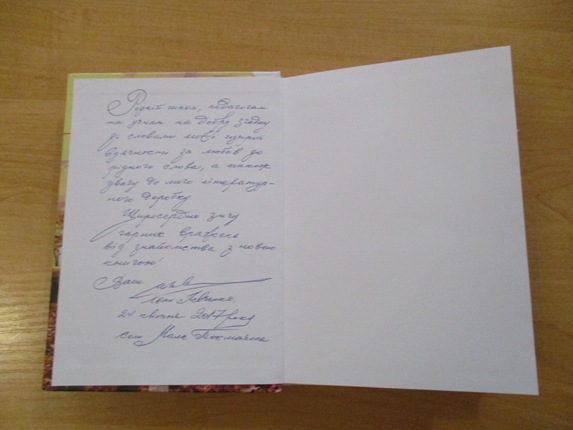 Рідній школі, педагогам
та учням на добру згадку
зі словами моєї щирої
вдячности за любов до
рідного слова, а також
увагу до мого літератур-
ного доробку
Щиросердно зичу
гарних вражень
від знайомства з новою
книгою!
Ваш
24 квітня 2017 року
Токмачка